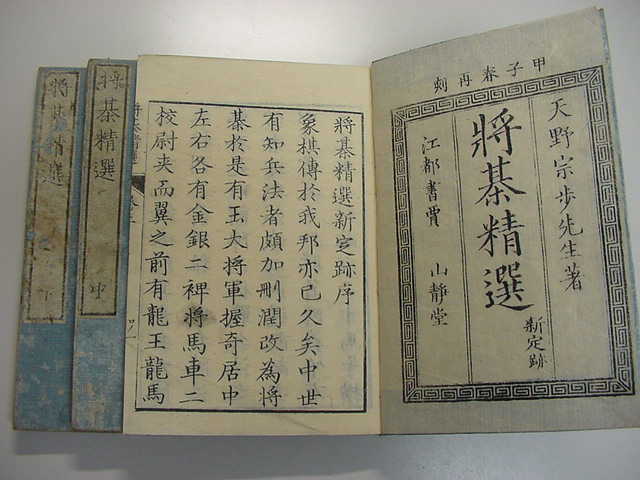 甲子春再刻
天野宗歩先生著
將棊精選
新定跡
江都書賈 山靜堂
將棊精選新定跡序
象棋傳於我邦亦已久矣中世
有知兵法者頗加刪潤改為將
棊於是有玉大將軍握奇居中
左右各有金銀二裨將馬車二
校尉夾而翼之前有龍王龍馬
將棊精選
中
將棊精選
下